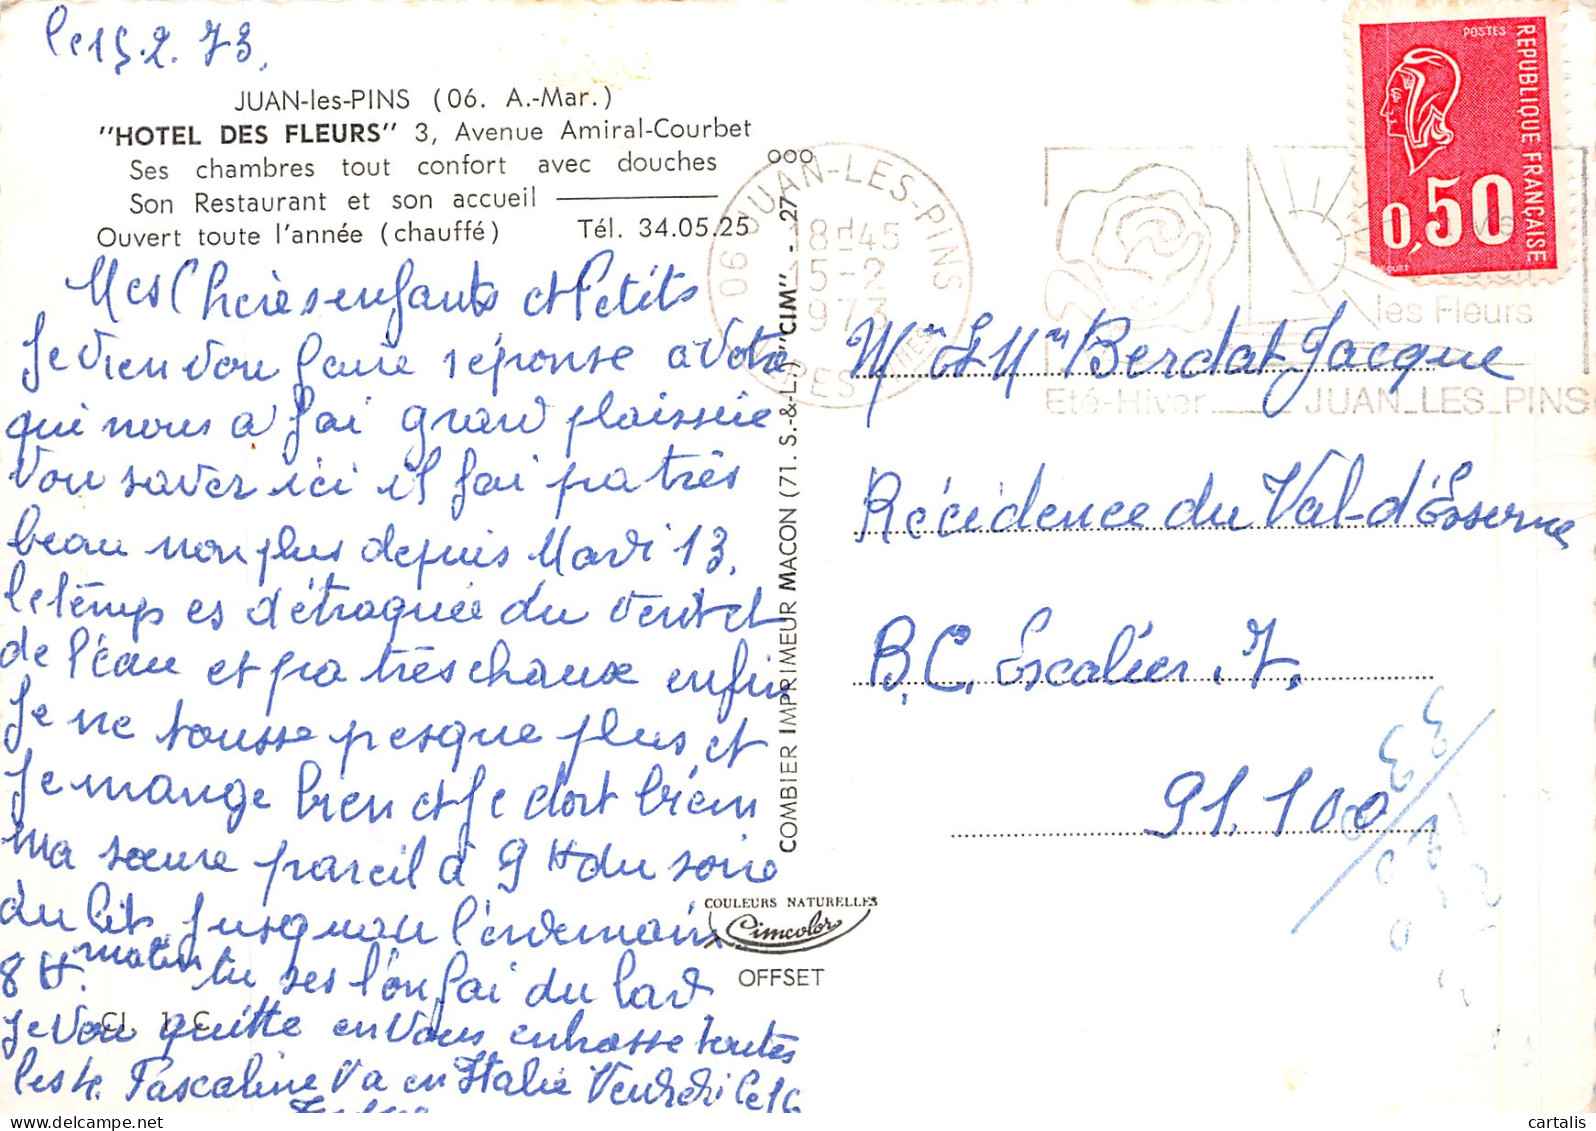 le 15.2.73.
JUAN-les-PINS (06. A.-Mar.)
"HOTEL DES FLEURS" 3, Avenue Amiral-Courbet
Ses chambres tout confort avec douches
Son Restaurant et son accueil
Ouvert toute l'année (chauffé) Tél. 34.05.25
Mes Chères enfants et Petits
Je vien vou faire réponse a Votre
qui nous a fai grand plaissie
Vou saver ici il fai pa très
beau non plus depuis Mardi 13.
le temp es détraquée du vent et
de l'éau et pa très chaux enfin
Je ne tousse pesque plus et
Je mange bien et Je dort bien
ma sœure pareil a 9 H du soire
du lit Jusquau l'endemain
8 H. matin tu ses l'on fai du lard
Je Vou quitte en Vous enbrasse toutes
les te Pascaline Va en Italie Vendredi le 16
CL. 1 C
COMBIER IMPRIMEUR MACON (71. S.-&-L.) "CIM" - 27
COULEURS NATURELLES
Cimcolor
OFFSET
06 JUAN-LES-PINS
18H45
15-2
1973
les Fleurs
Eté-Hiver JUAN-LES-PINS
POSTES
REPUBLIQUE FRANÇAISE
0,50
Mm et Mm Berdat Jacque
Récidence du Val-d'Essonne
B.C. Escalier. 7.
91.100
cartalis